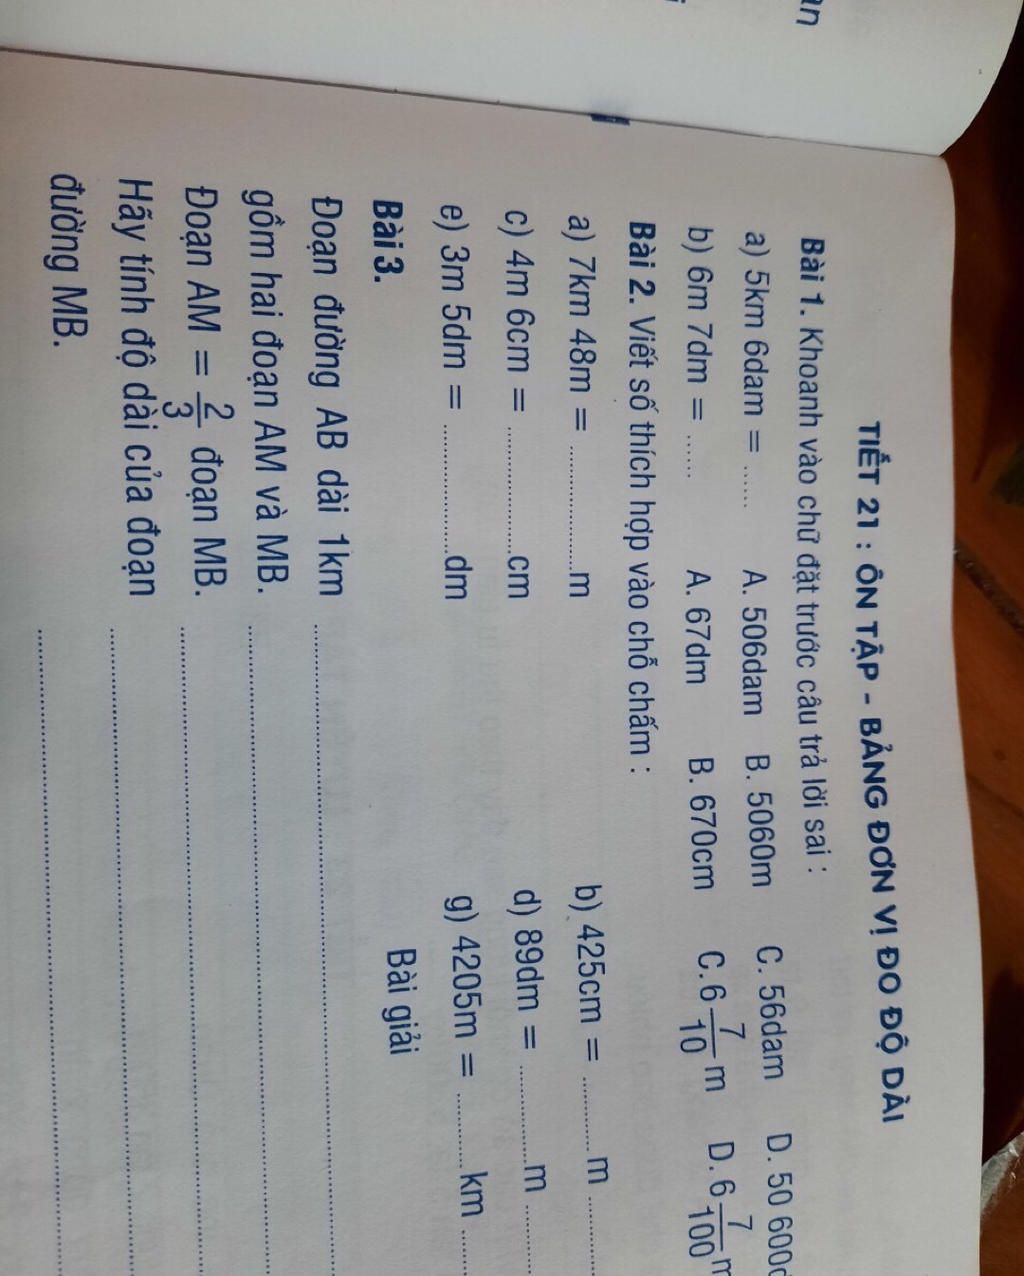 TIẾT 21 : ÔN TẬP - BẢNG ĐƠN VỊ ĐO ĐỘ DÀI
Bài 1. Khoanh vào chữ đặt trước câu trả lời sai :
a) 5km 6dam = ...... A. 506dam B. 5060m C. 56dam D. 50 600
b) 6m 7dm = ...... A. 67dm B. 670cm C. 6 7/10 m D. 6 7/100 m
Bài 2. Viết số thích hợp vào chỗ chấm :
a) 7km 48m = ..................m b) 425cm = ...........m ...........
c) 4m 6cm = ..................cm d) 89dm = ...............m ...........
e) 3m 5dm = ..................dm g) 4205m = ..........km .......
Bài 3. Bài giải
Đoạn đường AB dài 1km
gồm hai đoạn AM và MB.
Đoạn AM = 2/3 đoạn MB.
Hãy tính độ dài của đoạn
đường MB.